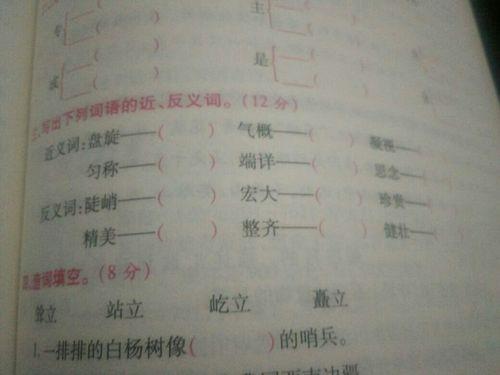 专 ( ) 主 ( )
( ) ( )
或 ( ) 是 ( )
( ) ( )
三、写出下列词语的近、反义词。(12分)
近义词:盘旋——( ) 气概——( ) 凝视——
匀称——( ) 端详——( ) 思念——(
反义词:陡峭——( ) 宏大——( ) 珍贵——(
精美——( ) 整齐——( ) 健壮——(
四、选词填空。(8分)
耸立 站立 屹立 矗立
1.一排排的白杨树像( )的哨兵。